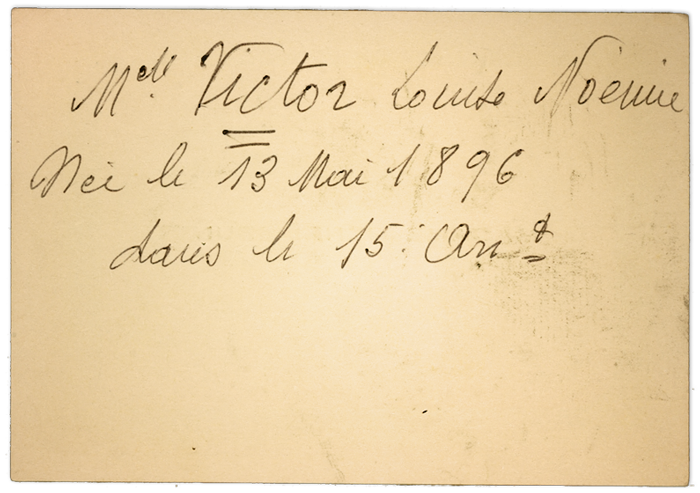 Melle Victor Louise Noémie
Née le 13 Mai 1896
dans le 15. Art